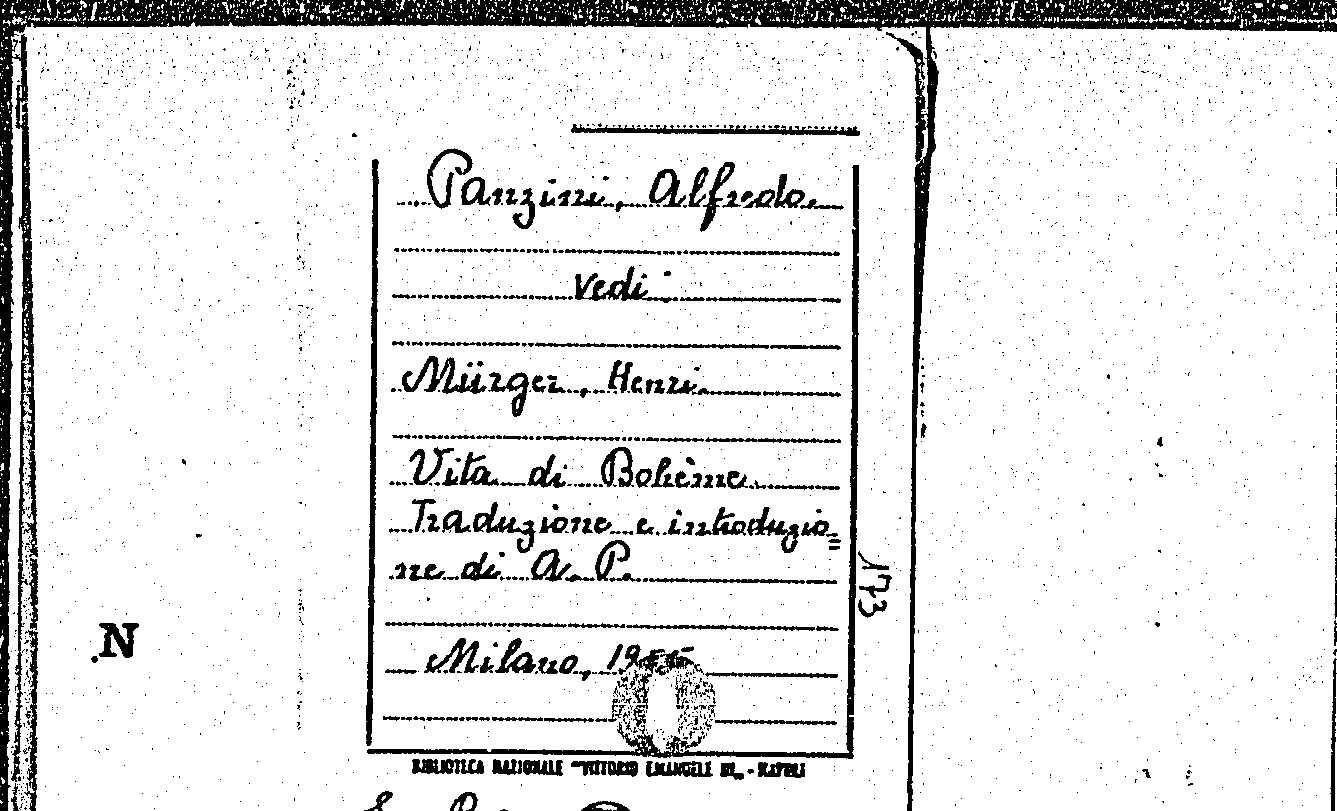 Panzini, Alfredo.
Vedi:
Mürger, Henri.
Vita di Bohème.
Traduzione e introduzio=
ne di A. P.
Milano,
173
N
BIBLIOTECA NAZIONALE "VITTORIO EMANUELE III" - NAPOLI